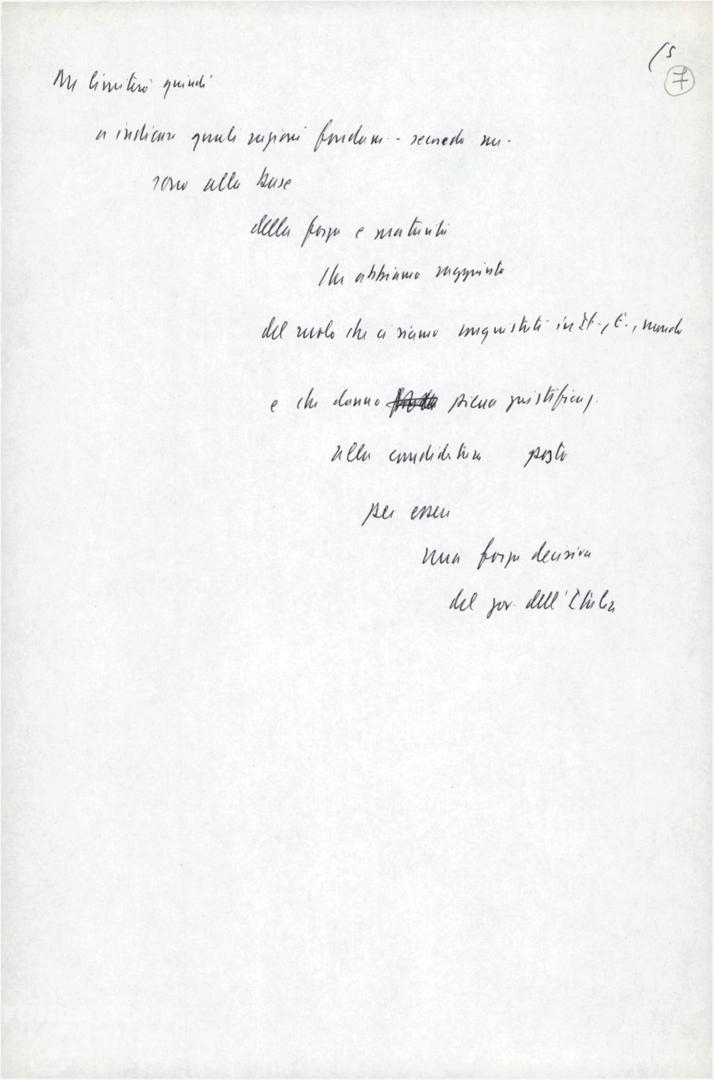 15
7
Mi limiterò quindi
a indicare quali ragioni fondam. - secondo me -
sono alla base
della forza e maturità
che abbiamo raggiunto
del ruolo che ci siamo conquistati in It., E., mondo
e che danno piena giustificaz.
alla candidatura
per essere
una forza decisiva
del gov. dell'Italia